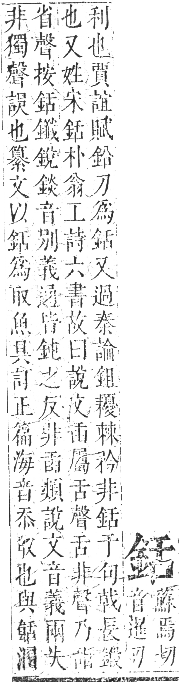 銛蘇焉切
音暹刃
利也賈誼賦鉛刀為銛又過秦論鉏耰棘矜非銛于句戟長鎩
也又姓宋銛朴翁工詩六書故曰說文臿屬舌聲舌非聲乃甛
省聲按銛鑯銳錟音別義邇皆鈍之反非臿類說文音義兩失
非獨聲誤也纂文以銛為取魚具訂正篇海音忝取也與餂溷